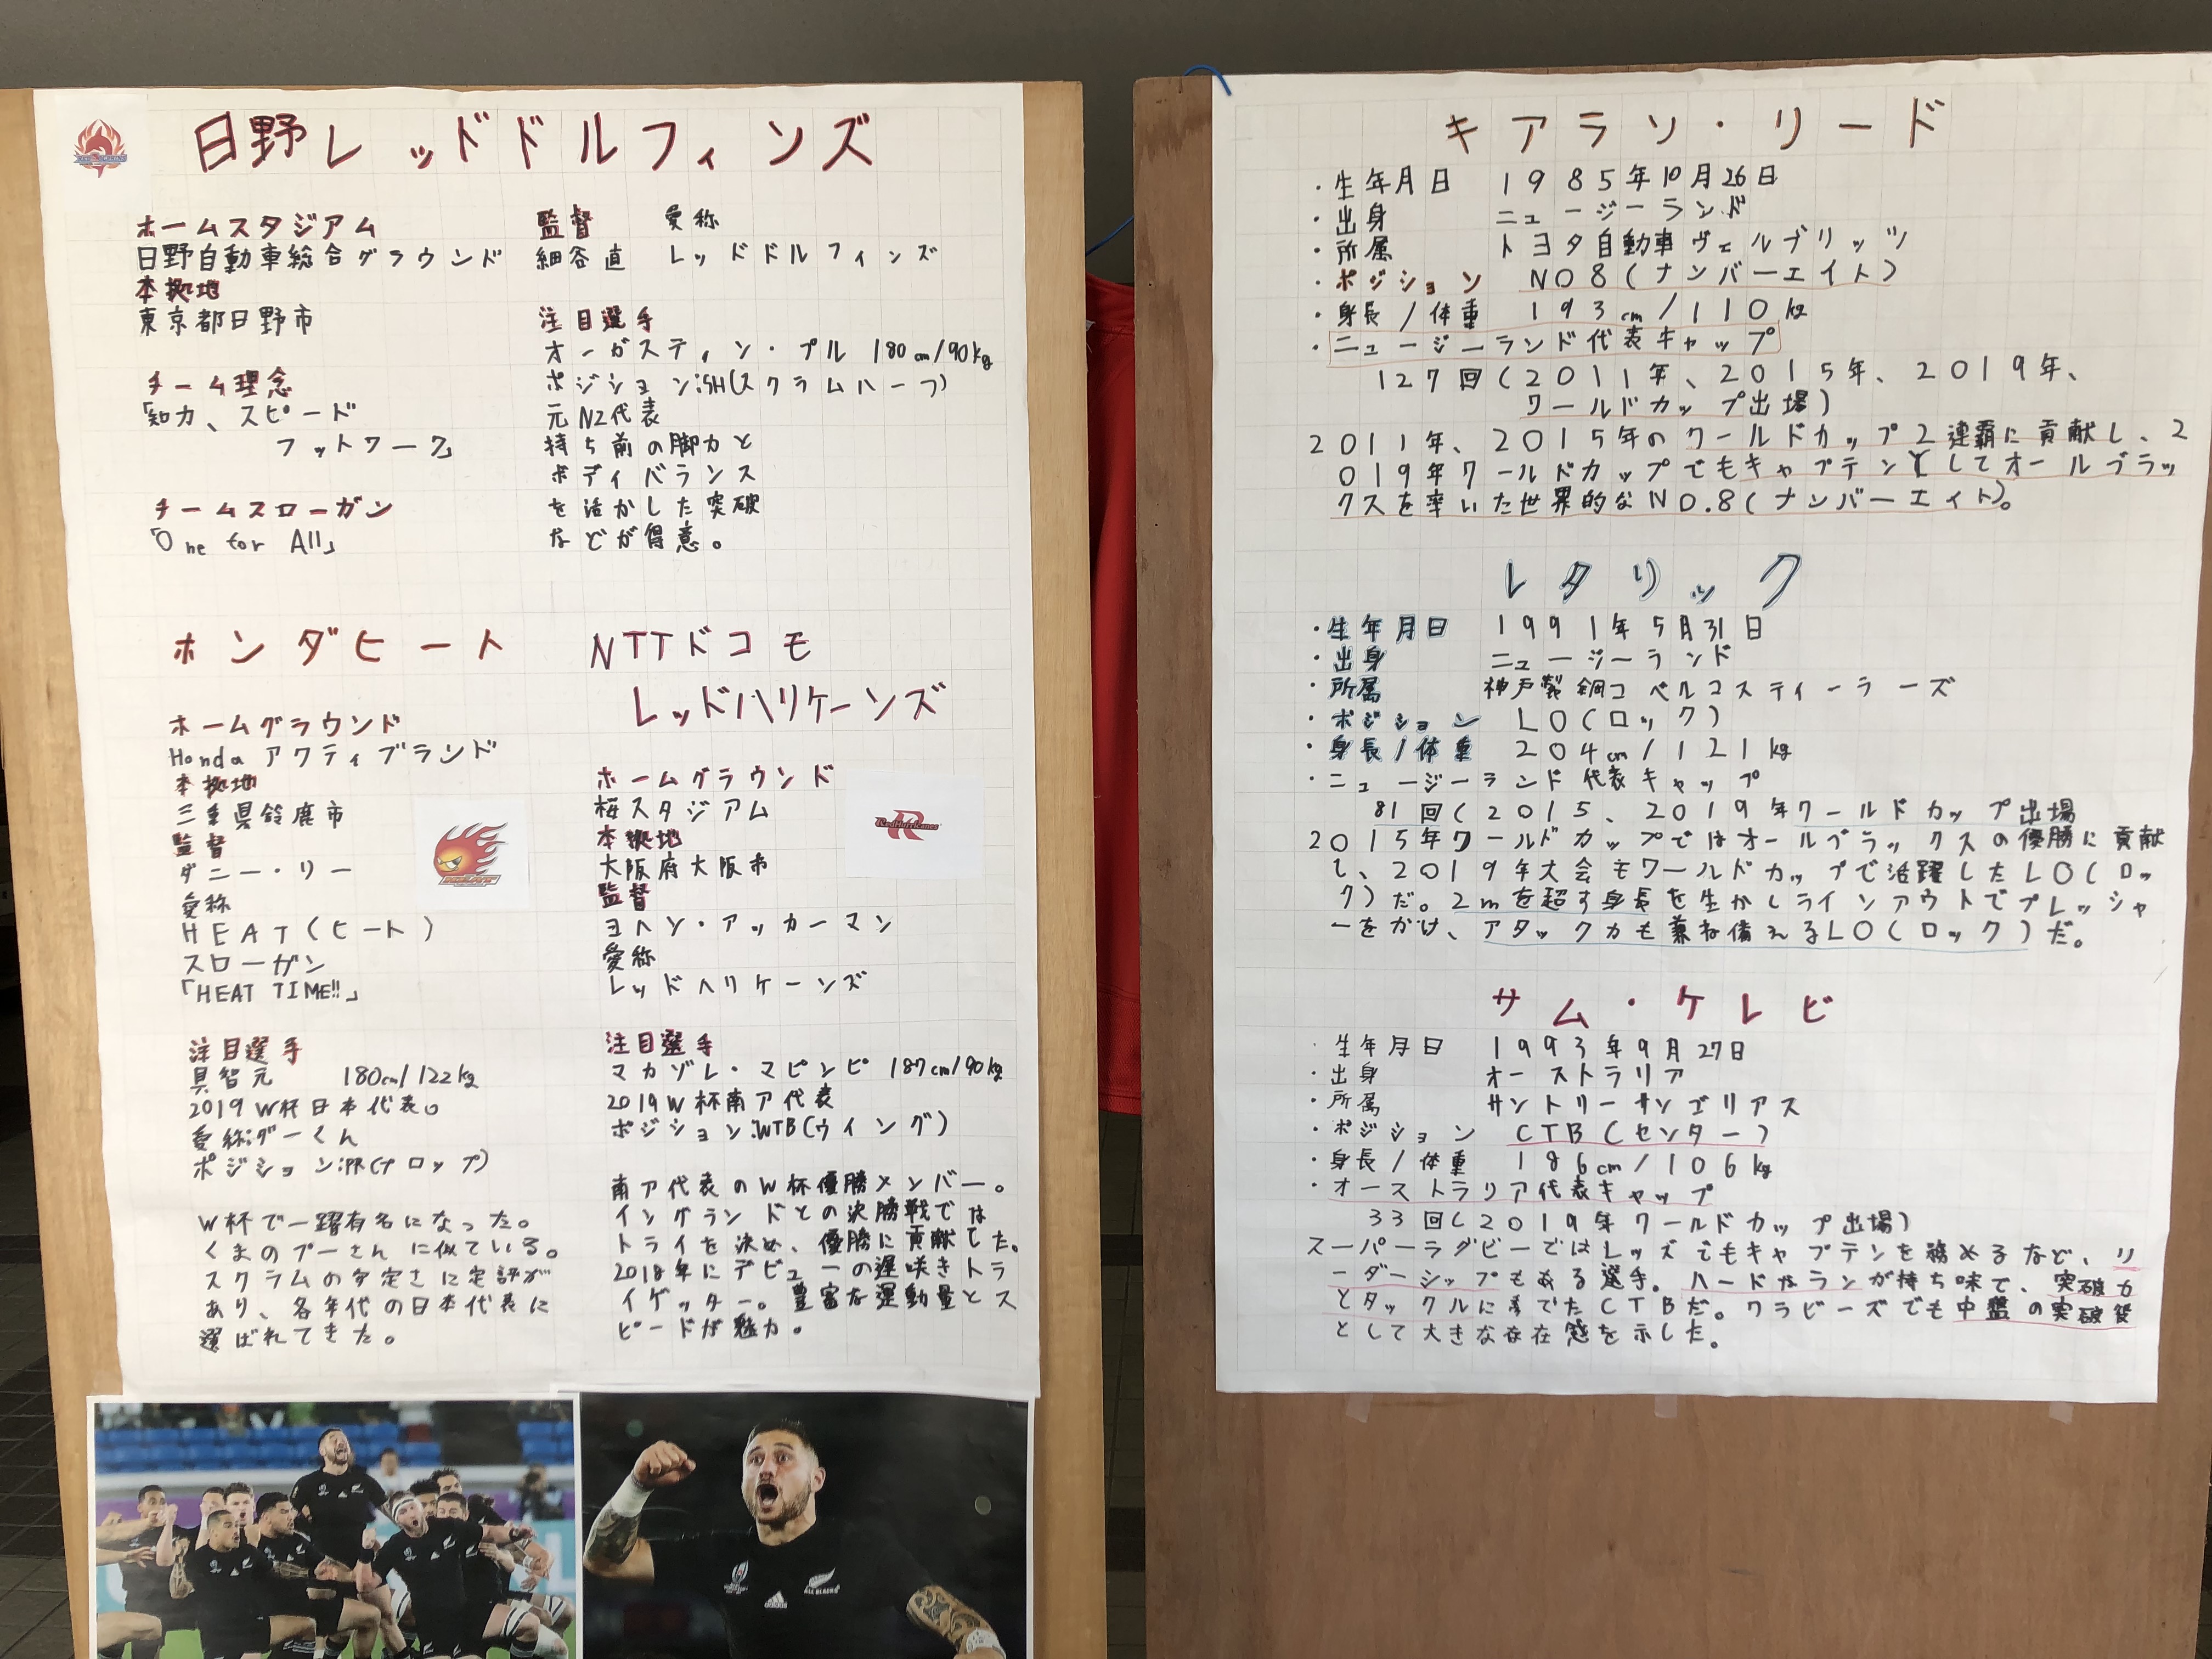 日野レッドドルフィンズ
ホームスタジアム
日野自動車総合グラウンド
本拠地
東京都日野市
チーム理念
「知力、スピード
フットワーク」
チームスローガン
「One for All」
監督 愛称
細谷直 レッドドルフィンズ
注目選手
オーガスティン・プル 180cm/90kg
ポジション:SH(スクラムハーフ)
元NZ代表
持ち前の脚力と
ボディバランス
を活かした突破
などが得意。
ホンダヒート
ホームグラウンド
Honda アクティブランド
本拠地
三重県鈴鹿市
監督
ダニー・リー
愛称
HEAT(ヒート)
スローガン
「HEAT TIME!!」
注目選手
具智元 180cm/122kg
2019W杯日本代表。
愛称:グーくん
ポジション:PR(プロップ)
W杯で一躍有名になった。
くまのプーさんに似ている。
スクラムの安定さに定評が
あり、各年代の日本代表に
選ばれてきた。
NTTドコモ
レッドハリケーンズ
ホームグラウンド
桜スタジアム
本拠地
大阪府大阪市
監督
ヨハン・アッカーマン
愛称
レッドハリケーンズ
RedHurricanes
注目選手
マカゾレ・マピンピ 187cm/90kg
2019W杯南ア代表
ポジション:WTB(ウイング)
南ア代表のW杯優勝メンバー。
イングランドとの決勝戦では
トライを決め、優勝に貢献した。
2018年にデビューの遅咲きトラ
イゲッター。豊富な運動量とス
ピードが魅力。
キアラン・リード
・生年月日 1985年10月26日
・出身 ニュージーランド
・所属 トヨタ自動車ヴェルブリッツ
・ポジション NO8(ナンバーエイト)
・身長/体重 193cm/110kg
・ニュージーランド代表キャップ
127回(2011年、2015年、2019年、
ワールドカップ出場)
2011年、2015年のワールドカップ2連覇に貢献し、2
019年ワールドカップでもキャプテンとしてオールブラッ
クスを率いた世界的なNO.8(ナンバーエイト)。
レタリック
・生年月日 1991年5月31日
・出身 ニュージーランド
・所属 神戸製鋼コベルコスティーラーズ
・ポジション LO(ロック)
・身長/体重 204cm/121kg
・ニュージーランド代表キャップ
81回(2015、2019年ワールドカップ出場
2015年ワールドカップではオールブラックスの優勝に貢献
し、2019年大会もワールドカップで活躍したLO(ロッ
ク)だ。2mを超す身長を生かしラインアウトでプレッシャ
ーをかけ、アタック力も兼ね備えるLO(ロック)だ。
サム・ケレビ
・生年月日 1993年9月27日
・出身 オーストラリア
・所属 サントリーサンゴリアス
・ポジション CTB(センター)
・身長/体重 186cm/106kg
・オーストラリア代表キャップ
33回(2019年ワールドカップ出場)
スーパーラグビーではレッズでもキャプテンを務めるなど、リ
ーダーシップもある選手。ハードなランが持ち味で、突破力
とタックルに秀でたCTBだ。ワラビーズでも中盤の突破役
として大きな存在感を示した。
adidas
ALL BLACKS